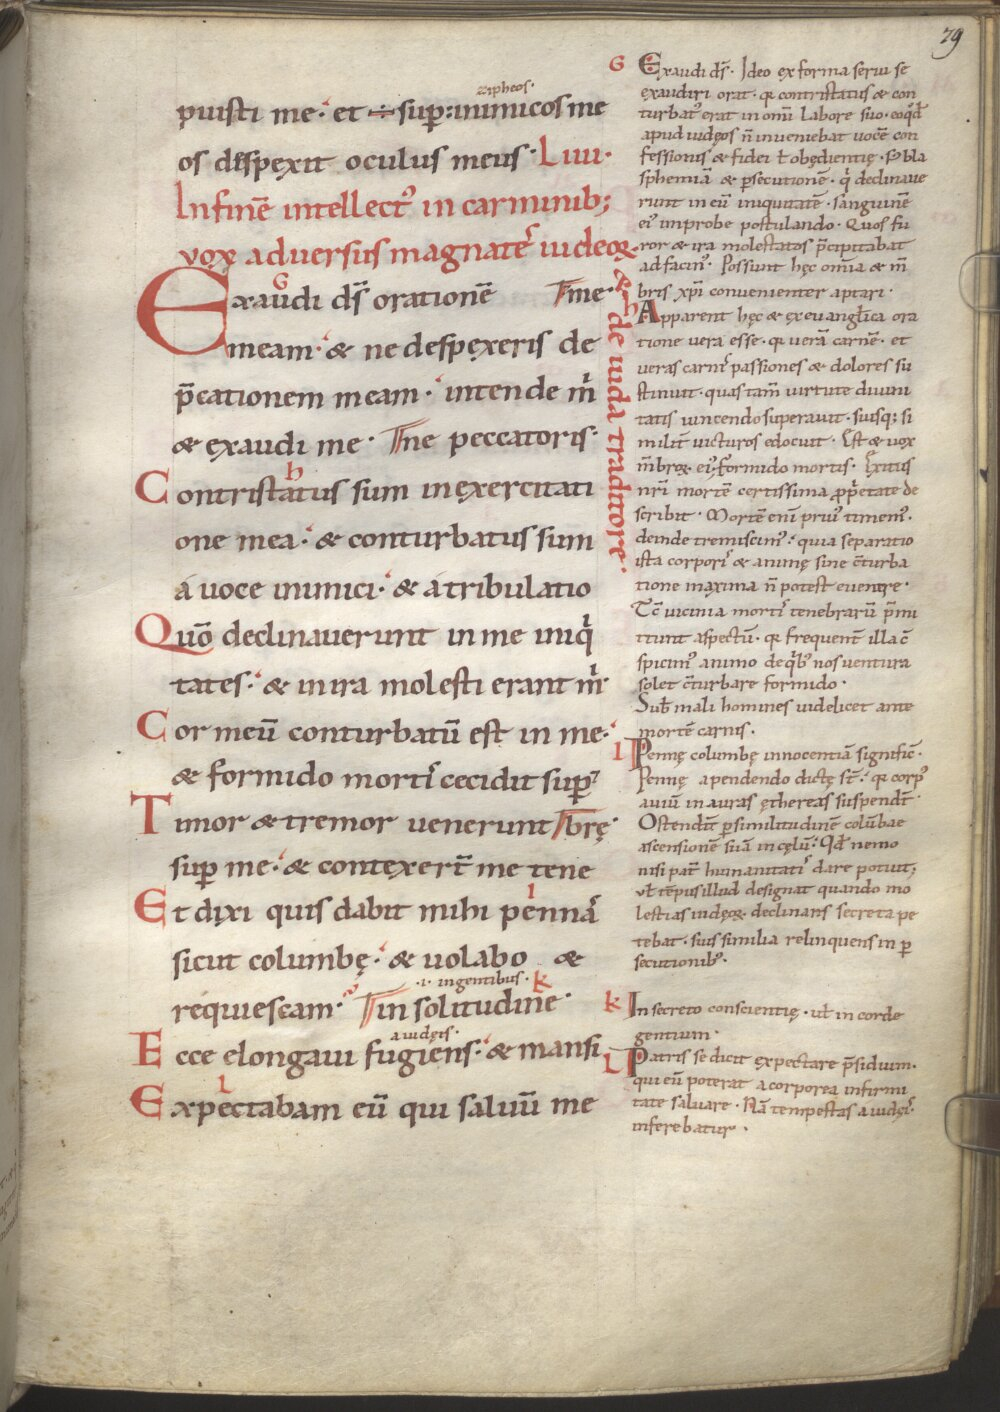 79
zipheos·
puisti me· et ÷ sup̄: inimicos me
os despexit oculus meus· Liiii·
In finē intellect᷒ in carminib;
vox adversus magnatē iudeoꝝ
& de iuda traditore·
G
Exaudi dš orationē ne·
meam· & ne despexeris de
p̄cationem meam· intende m̄
& exaudi me· ne peccatoris·
h
Contristatus sum in exercitati
one mea· & conturbatus sum
a voce inimici· & a tribulatio
Quō declinaverunt in me iniq
tates· & in ira molesti erant m
Cor meū conturbatū est in me·
& formido morti᷒ cecidit sup
Timor & tremor venerunt brę·
sup me· & contexer̄t me tene
i
Et dixi quis dabit mihi pennā
sicut columbę· & volabo &
·i· in gentibus· k
requiescam· in solitudine·
a iudęis·
Ecce elongavi fugiens· & mansi
l
Expectabam eū qui salvū me
G Exaudi dš· Ideo ex forma servi se
exaudiri orat· q contristatus & con
turbat᷒ erat in omī labore suo· eo qđ
apud iudęos n̄ inveniebat vocē con
fessionis & fidei ł obędientię· Sȝ bla
sphemiā & psecutionē· q declinave
runt in eū iniquitatē· sanguinē
ei᷒ improbe postulando· Quos fu
ror & ira molestatos p̄cipitabat
ad facin᷒· Possunt hęc om̄ia & m̄
bris xp̄i convenienter aptari·
h Apparent hęc & ex evangl̄ica ora
tione vera esse· q verā carnē· et
veras carni᷒ passiones & dolores su
stinuit· quas tam̄ virtute divini
tatis vincendo superavit· suisq; si
milit̄ victuros edocuit· Est & vox
m̄brę ei᷒· formido mortis· Exitus
nr̄i mortē certissima pp̄etate de
scribit· Mortē enī pri᷒ timem᷒·
deinde tremiscim᷒· quia separatio
ista corpori᷒ & animę sine c̄turba
tione maxima n̄ potest evenire·
Tc̄ vicinia morti᷒ tenebrarū p̄mi
ttunt aspectū· q frequent̄ illa c̄
spicim᷒ animo de qb᷒ nos ventura
solet c̄turbare formido·
Sub mali homines videlicet ante
mortē carnis·
i Pennę columbę innocentiā signific̄·
Pennę a pendendo dictę st̄· q corp᷒
aviū in auras ęthereas suspendt̄·
Ostendit̄ p similitudinē colūbae
ascensionē suā in cęlū· Qđ nemo
nisi pat̄ humanitati᷒ dare potuit;
vł tēpus illud designat quando mo
lestias iudęoꝝ declinans secreta pe
tebat· suis similia relinquens in p
secutionib᷒·
k In secreto conscientię· vł in corde
gentium·
l Patris se dicit expectare p̄sidium·
qui eū poterat a corporea infirmi
tate salvare· Nā tempestas a iudęi᷒
inferebatur·